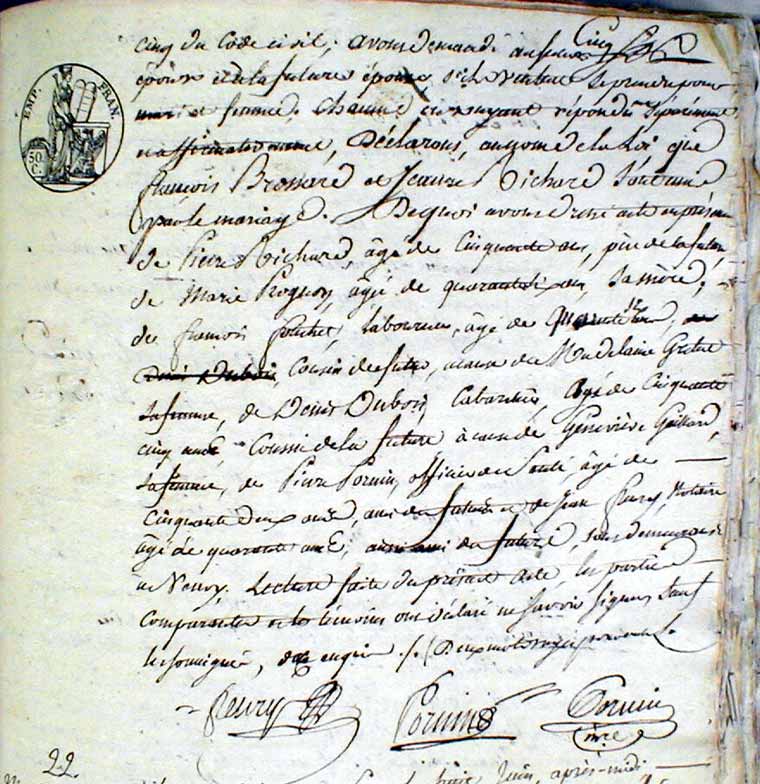 EMP. FRAN.
50 C.
Cinq
cinq du Code civil; avons demandé au futur
époux et à la future épouse s'ils veulent se prendre pour
mari et femme. Chacun d'eux ayant répondu séparément
et affirmativement, Déclarons, au nom de la Loi que
françois Brossard et Jeanne Richard sont unis
par le mariage. De quoi avons dressé acte en présence
de Pierre Richard, âgé de Cinquante ans, père de la future,
de Marie âgée de quarante six ans, sa mère,
de françois laboureur, âgé de
Denis Dubois, Cousin du futur, à cause de Madelaine
sa femme, de Denis Dubois, Cabaretier, âgé de Cinquante
cinq ans Cousin de la future à cause de Géneviève Gaillard,
sa femme, de Pierre Pornin, officier de Santé, âgé de
Cinquante deux ans, ami du futur et de Jean fleury, Notaire
âgé de quarante ans, aussi ami du futur, tous demeurant
à Neuvy. Lecture faite du présent acte, les parties
comparantes et les témoins ont déclaré ne savoir signer, sauf
les soussignés, de ce enquis ./. Deux mots rayés
fleury Pornin Pornin
22.
huit Juin, après-midi